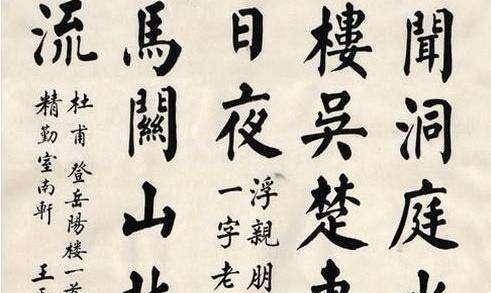 聞洞庭水
樓吳楚東
日夜
浮親朋
一字老
馬關山北
流
杜甫登岳陽楼一首
精勤室南軒 王